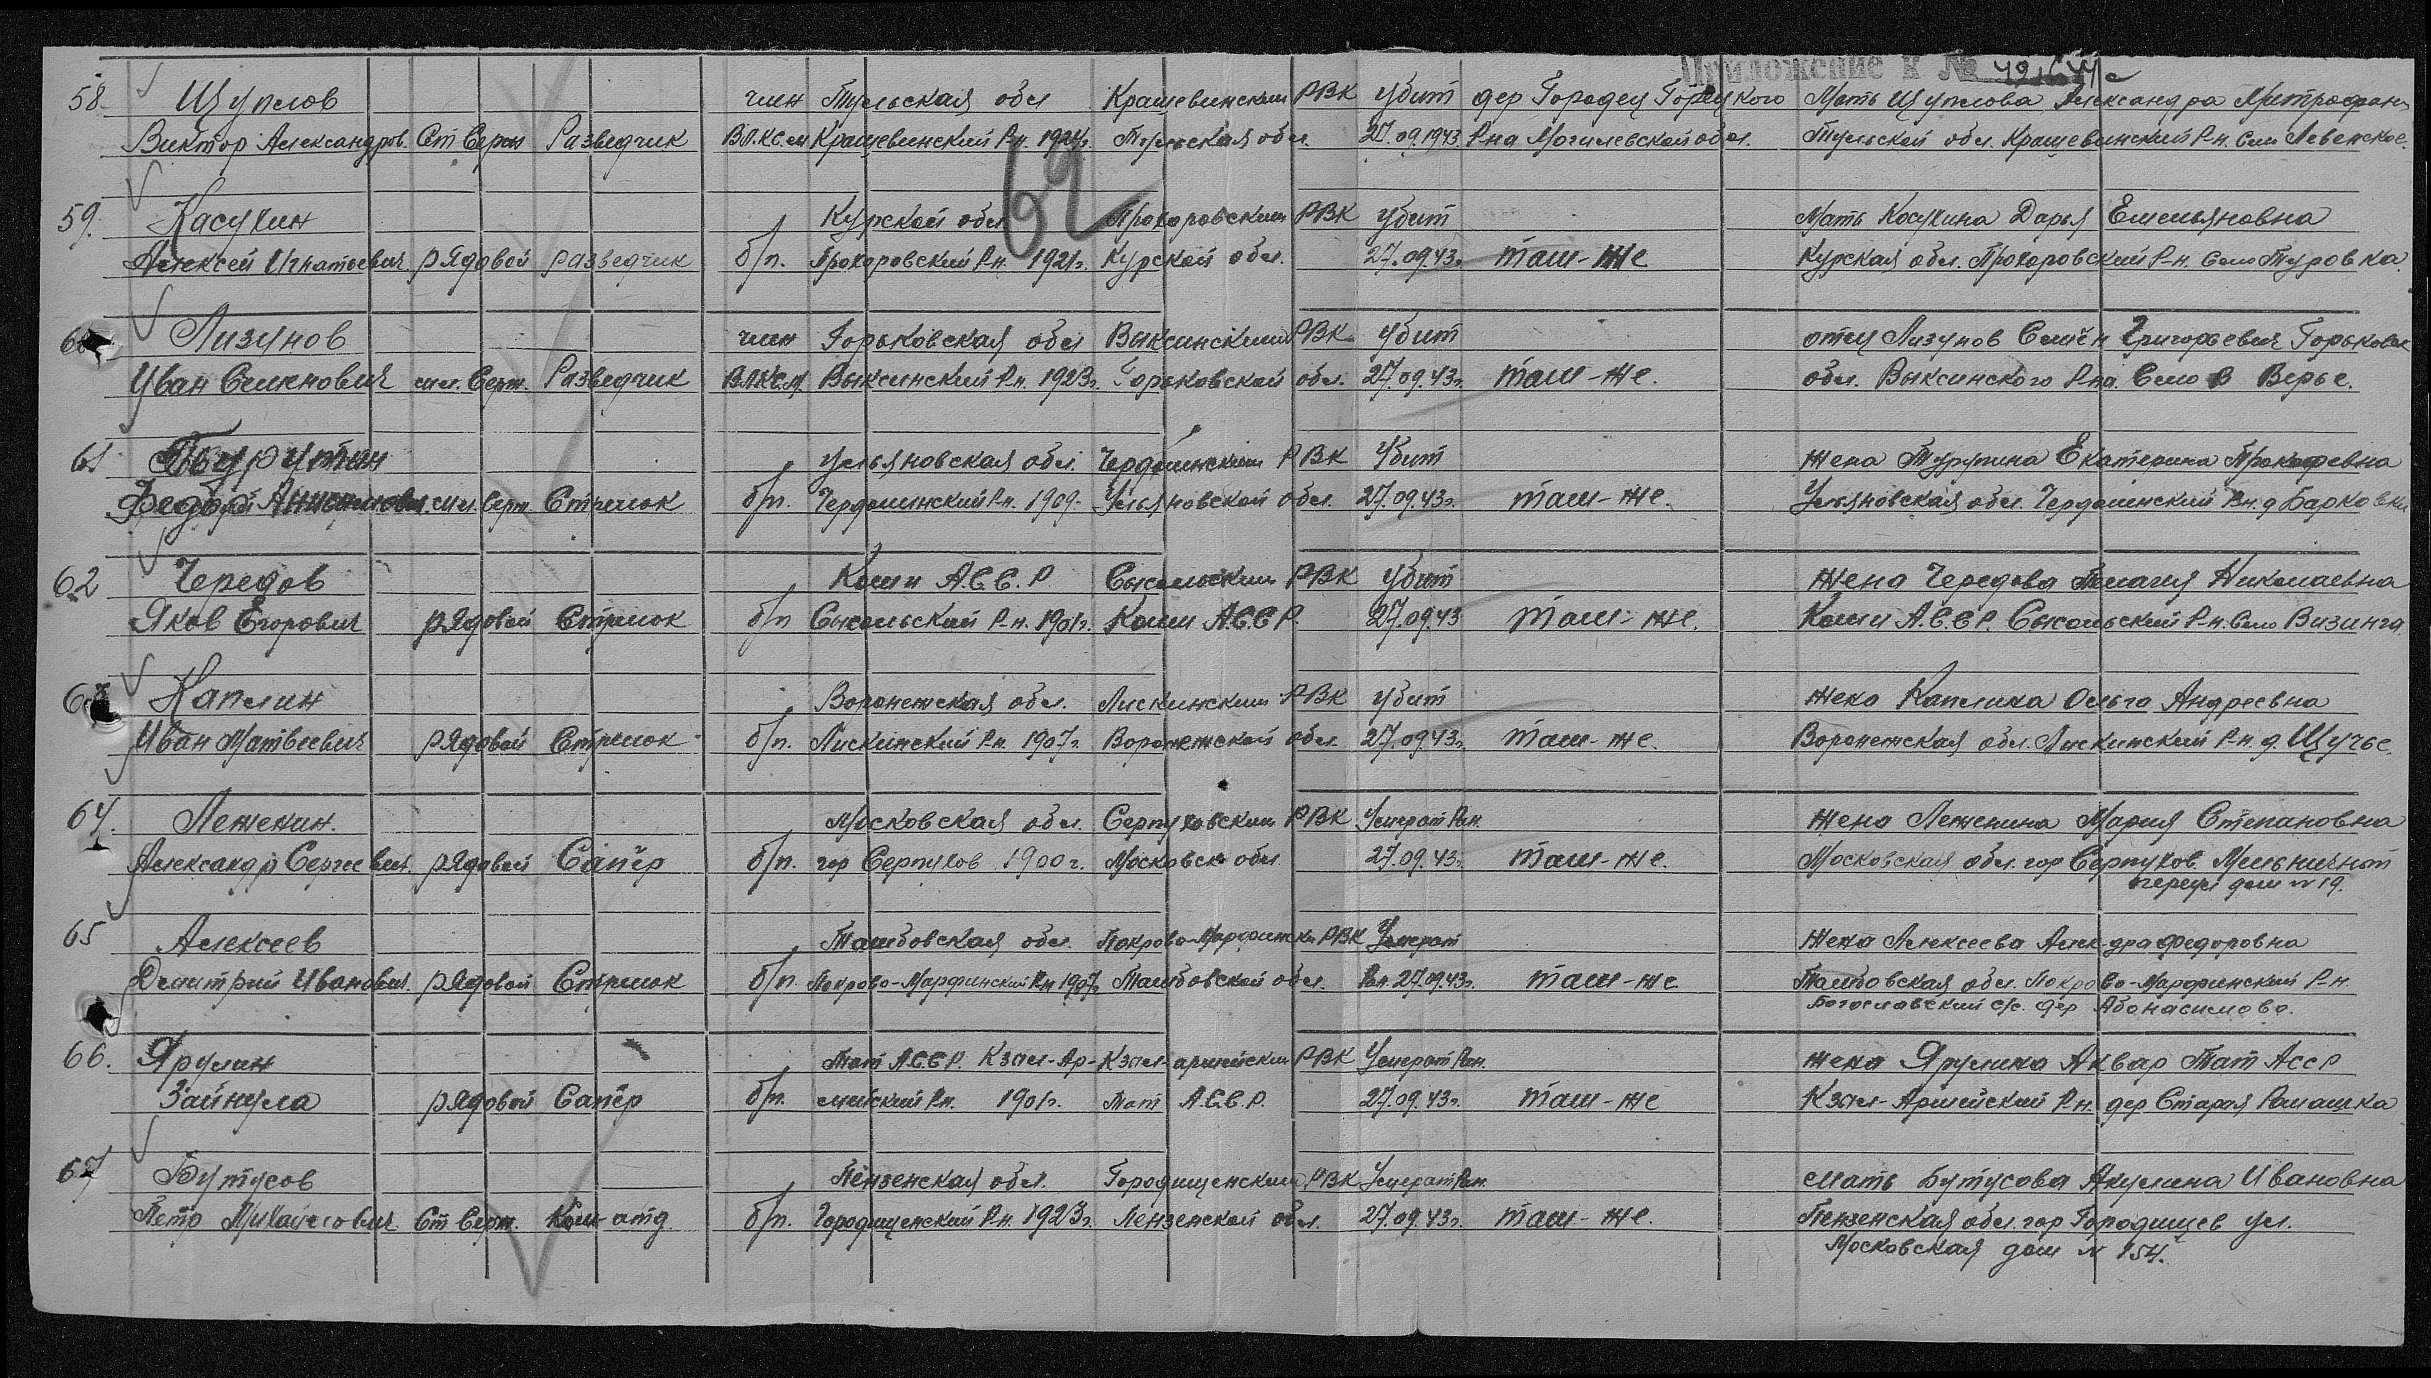 Приложение к №
58. Щуплов член Тульская обл Крапевинским РВК убит дер Городец Горецкого Мать Щуплова Александра Митрофан
Виктор Александров. Ст Серж Разведчик ВЛКСМ Крапевинский Р-н. 1924г. Тульская обл. 27.09.1943 Р-на Могилевской обл. Тульской обл. Крапевинский Р-н. Село Левенское.
62
59. Касухин Курской обл Прохоровским РВК убит Мать Косухина Дарья Емельяновна
Алексей Игнатьевич рядовой разведчик б/п. Прохоровский Р-н. 1921г. Курской обл. 27.09.43г. там-же Курская обл. Прохоровский Р-н. село Туровка.
60 Лизунов член Горьковская обл Выксинским РВК убит отец Лизунов Семён Григорьевич Горьковск
Иван Семенович мл. Серж. Разведчик ВЛКСМ. Выксинский Р-н. 1923г. Горьковской обл. 27.09.43г. там-же. обл. Выксинского Р-на. Село В Верье.
61 Ульяновская обл. РВК Убит жена Турутина Екатерина Прокофевна
Федор мл. Серж. Стрелок б/п. 1909. Ульяновской обл. 27.09.43г. там-же. Ульяновская обл. Р-н. д Барковки
62 Чередов Коми А.С.С.Р Сысольским РВК убит жена Чередова Пелагия Николаевна
Яков Егорович рядовой Стрелок б/п Сысольский Р-н. 1901г. Коми А.С.С.Р. 27.09.43 там-же. Коми А.С.С.Р. Сысольский Р-н. Село Визинга
63 Каплин Воронежская обл. Лискинским РВК убит жена Каплина Ольга Андреевна
Иван Матвеевич рядовой Стрелок б/п. Лискинский Р-н. 1907г. Воронежской обл. 27.09.43г. там-же. Воронежская обл. Лискинский Р-н. д. Щучье.
64. Леженин. Московская обл. Серпуховским РВК Умер от Ран. жена Леженина Мария Степановна
Александр Сергеевич. рядовой Сапёр б/п. гор Серпухов 1900г. Московск обл 27.09.43г. там-же. Московская обл. гор Серпухов Мельничной
дом № 19.
65 Алексеев Тамбовская обл. Покрово-Марфински РВК Умер от жена Алексеева Алек-дра Федоровна
Дмитрий Иванович. рядовой Стрелок б/п. Покрово-Марфинский Р-н 1907г. Тамбовской обл. Ран. 27.09.43г. там-же Тамбовская обл. Покрово-Марфинский Р-н.
Богославский с/с. дер Абонасимово.
66. Ярулин Тат А.С.С.Р. Кзыл-Ар- Кзыл-армейским РВК Умер от Ран. жена Ярулина Аквар Тат Асср
Зайнула рядовой Сапёр б/п. мейский Р-н. 1901г. Тат А.С.С.Р. 27.09.43г. там-же Кзыл-Армейский Р-н. дер Старая Ромашка
67 Бутусов Пензенская обл. Городищенским РВК Умер от Ран. мать Бутусова Акулина Ивановна
Петр Михайлович Ст Серж. Ком-отд б/п. Городищенский Р-н. 1923г. Пензенской обл. 27.09.43г. там-же. Пензенская обл. гор Городищев ул.
Московская дом № 154.